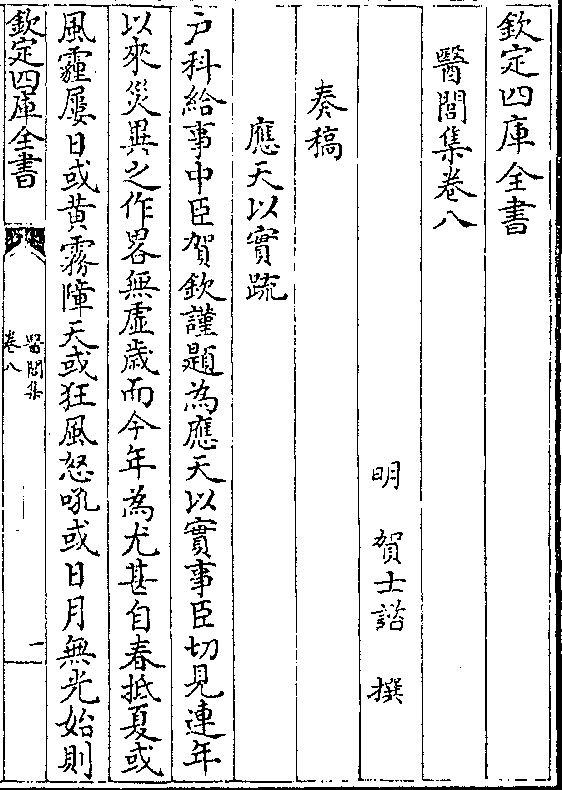 欽定四庫全書
醫閭集卷八
明 賀士諮 撰
奏稿
應天以實疏
户科給事中臣賀欽謹題為應天以實事臣切見連年
以來災異之作畧無虛歲而今年為尤甚自春抵夏或
風霾屢日或黄霧障天或狂風怒吼或日月無光始則
欽定四庫全書
醫閭集
卷八
一